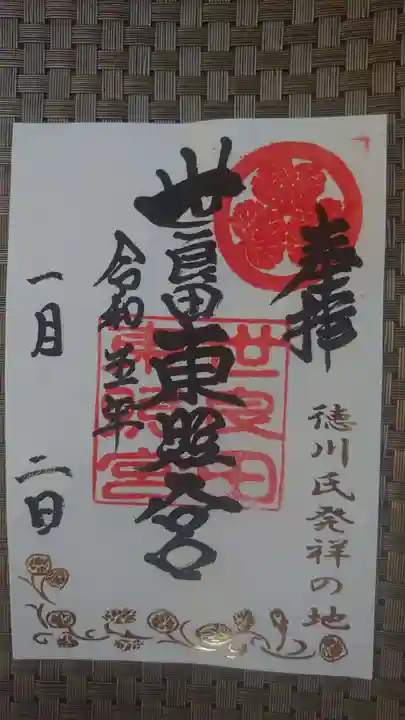 奉拝
徳川氏発祥の地
世良田東照宮
世良田
東照宮
令和五年
一月
二日